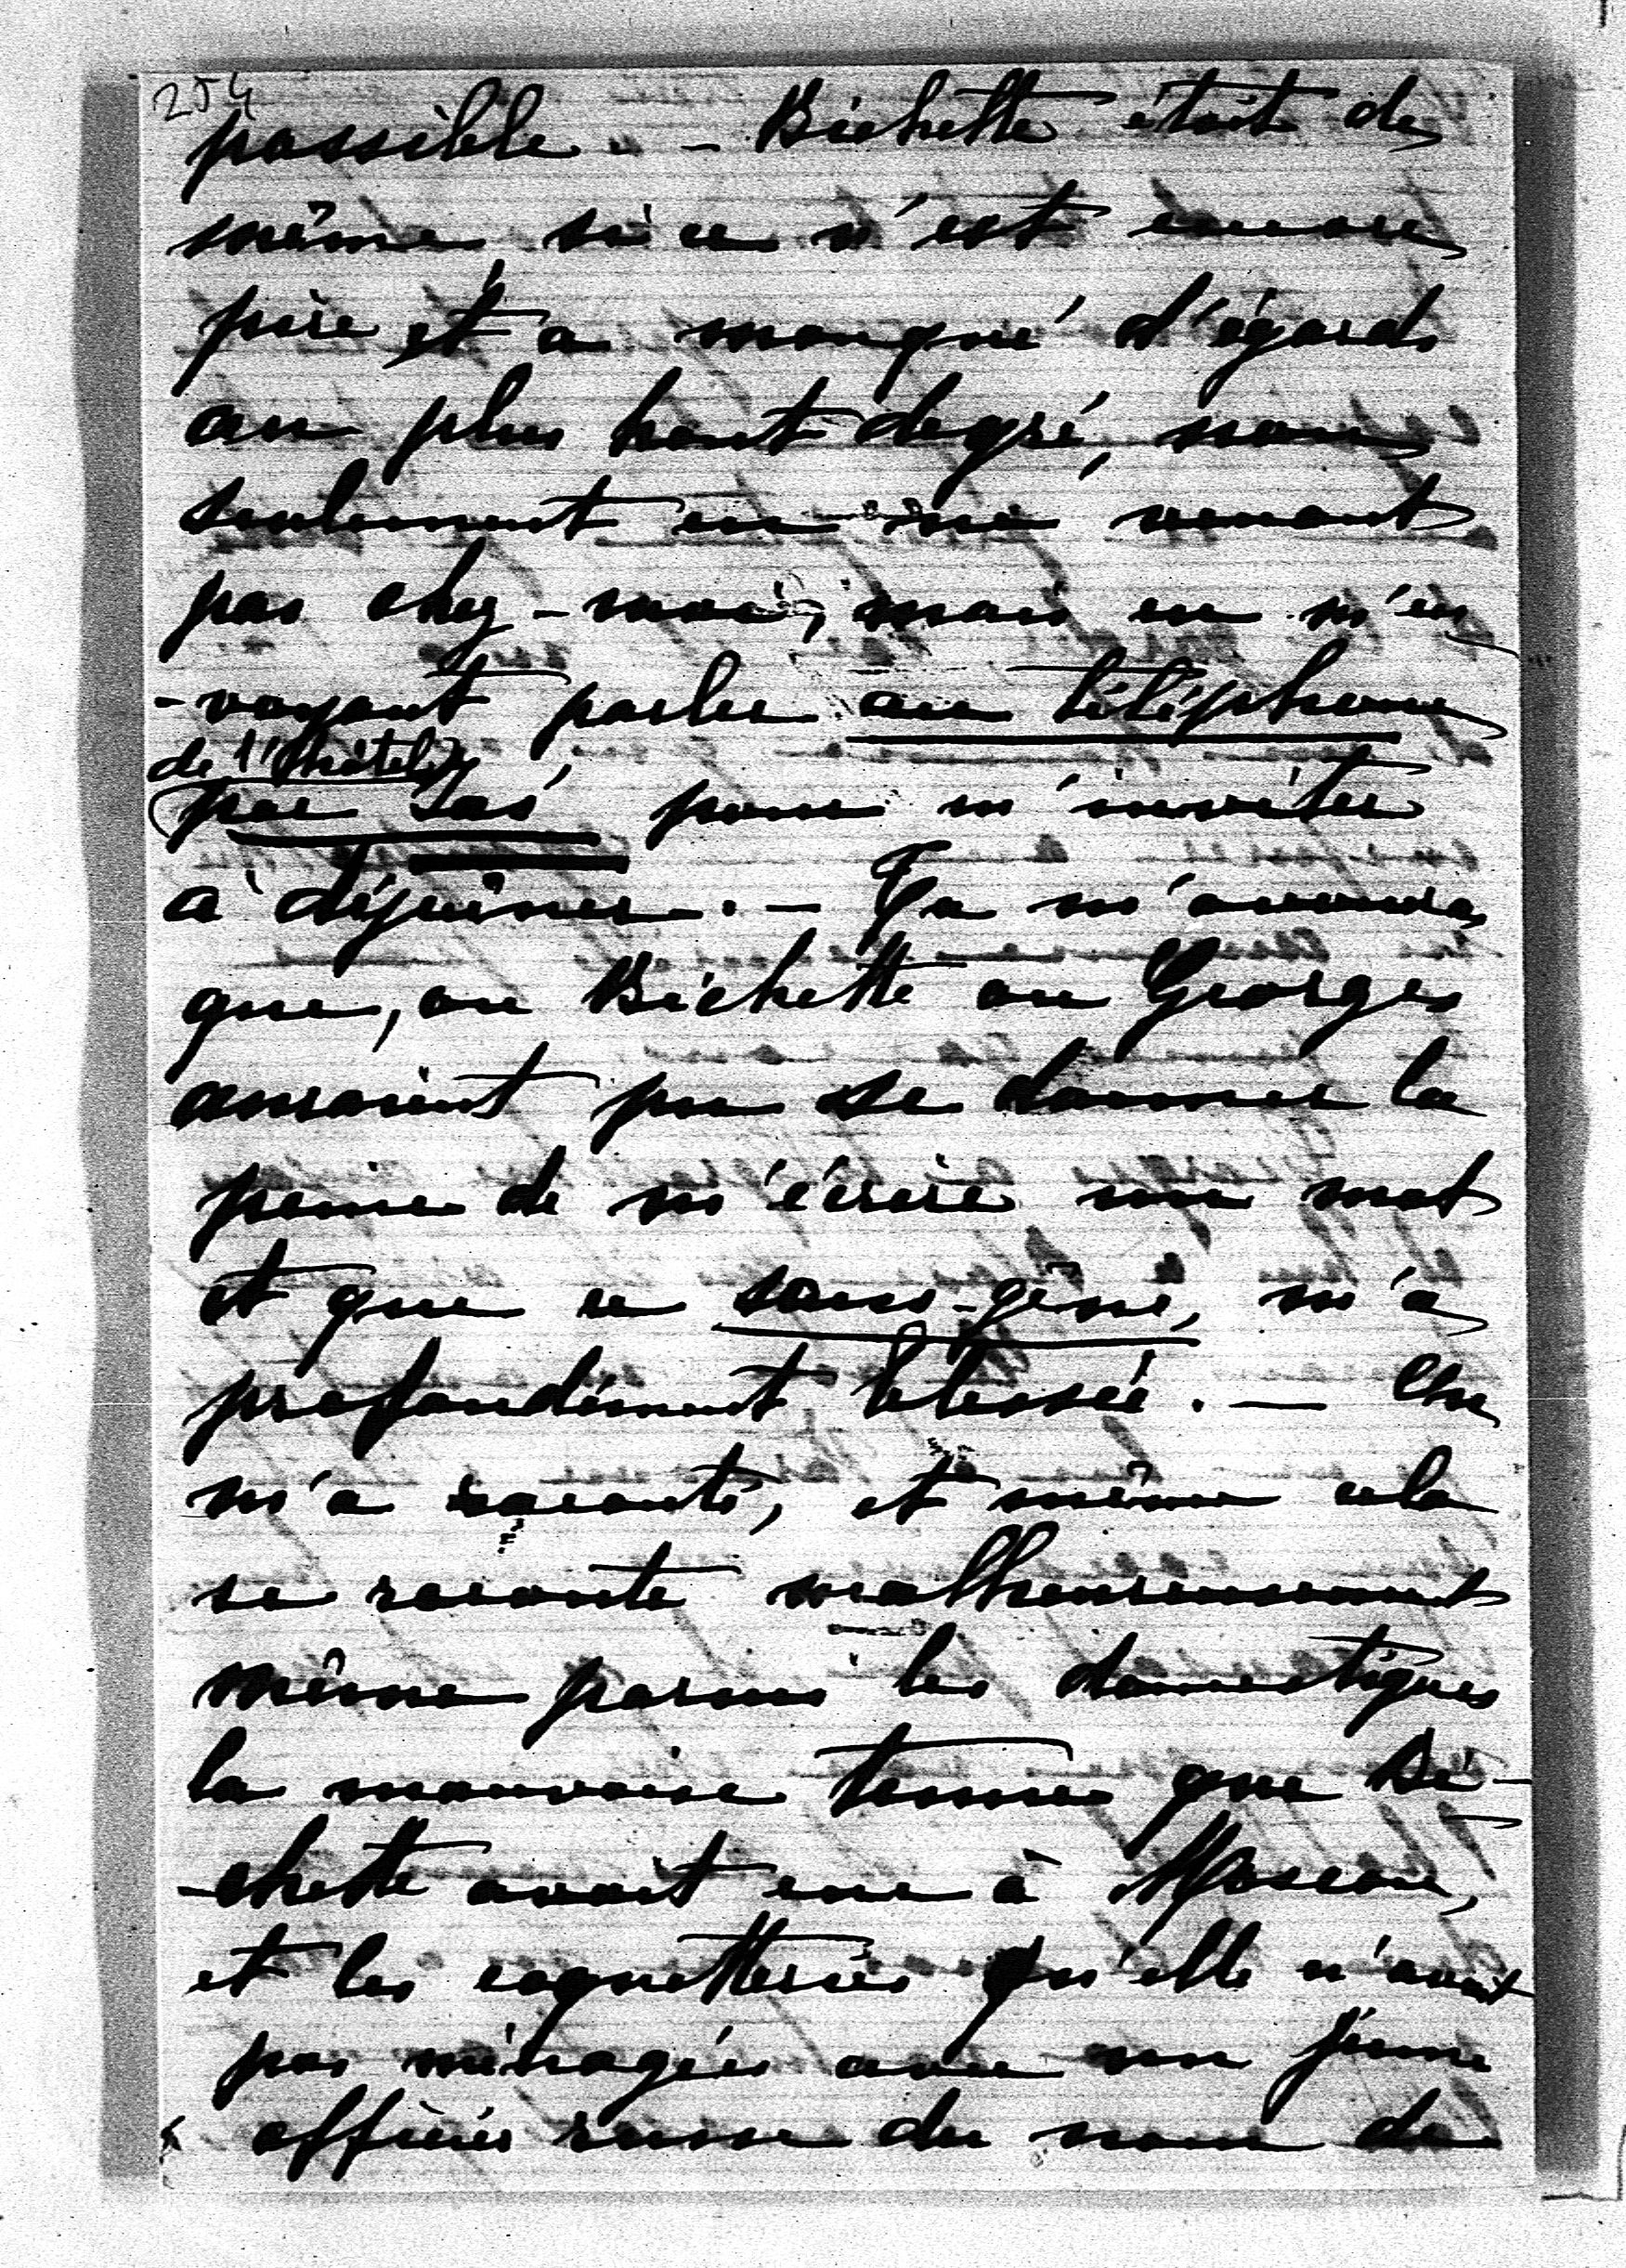 254
possible. - Bichette était de
même si ce n'est encore
pire et a manqué d'égards
au plus haut degré, non
seulement en ne venant
pas chez-moi, mais en m'en
-voyant parler au téléphone
de l'hôtel
(par Las pour m'inviter
à déjeûner. - Tu m'avoueras
que, ou Bichette ou Georges
auraient pu se donner la
peine de m'écrire un mot
et que ce sans-gêne, m'a
profondément blessée. - On
m'a raconté, et même cela
se raconte malheureusement
même parmi les domestiques
la mauvaise tenue que Bi-
-chette avait eue à Moscou,
et les coquetteries qu'elle n'avait
pas ménagées avec un jeune
officier russe du nom de